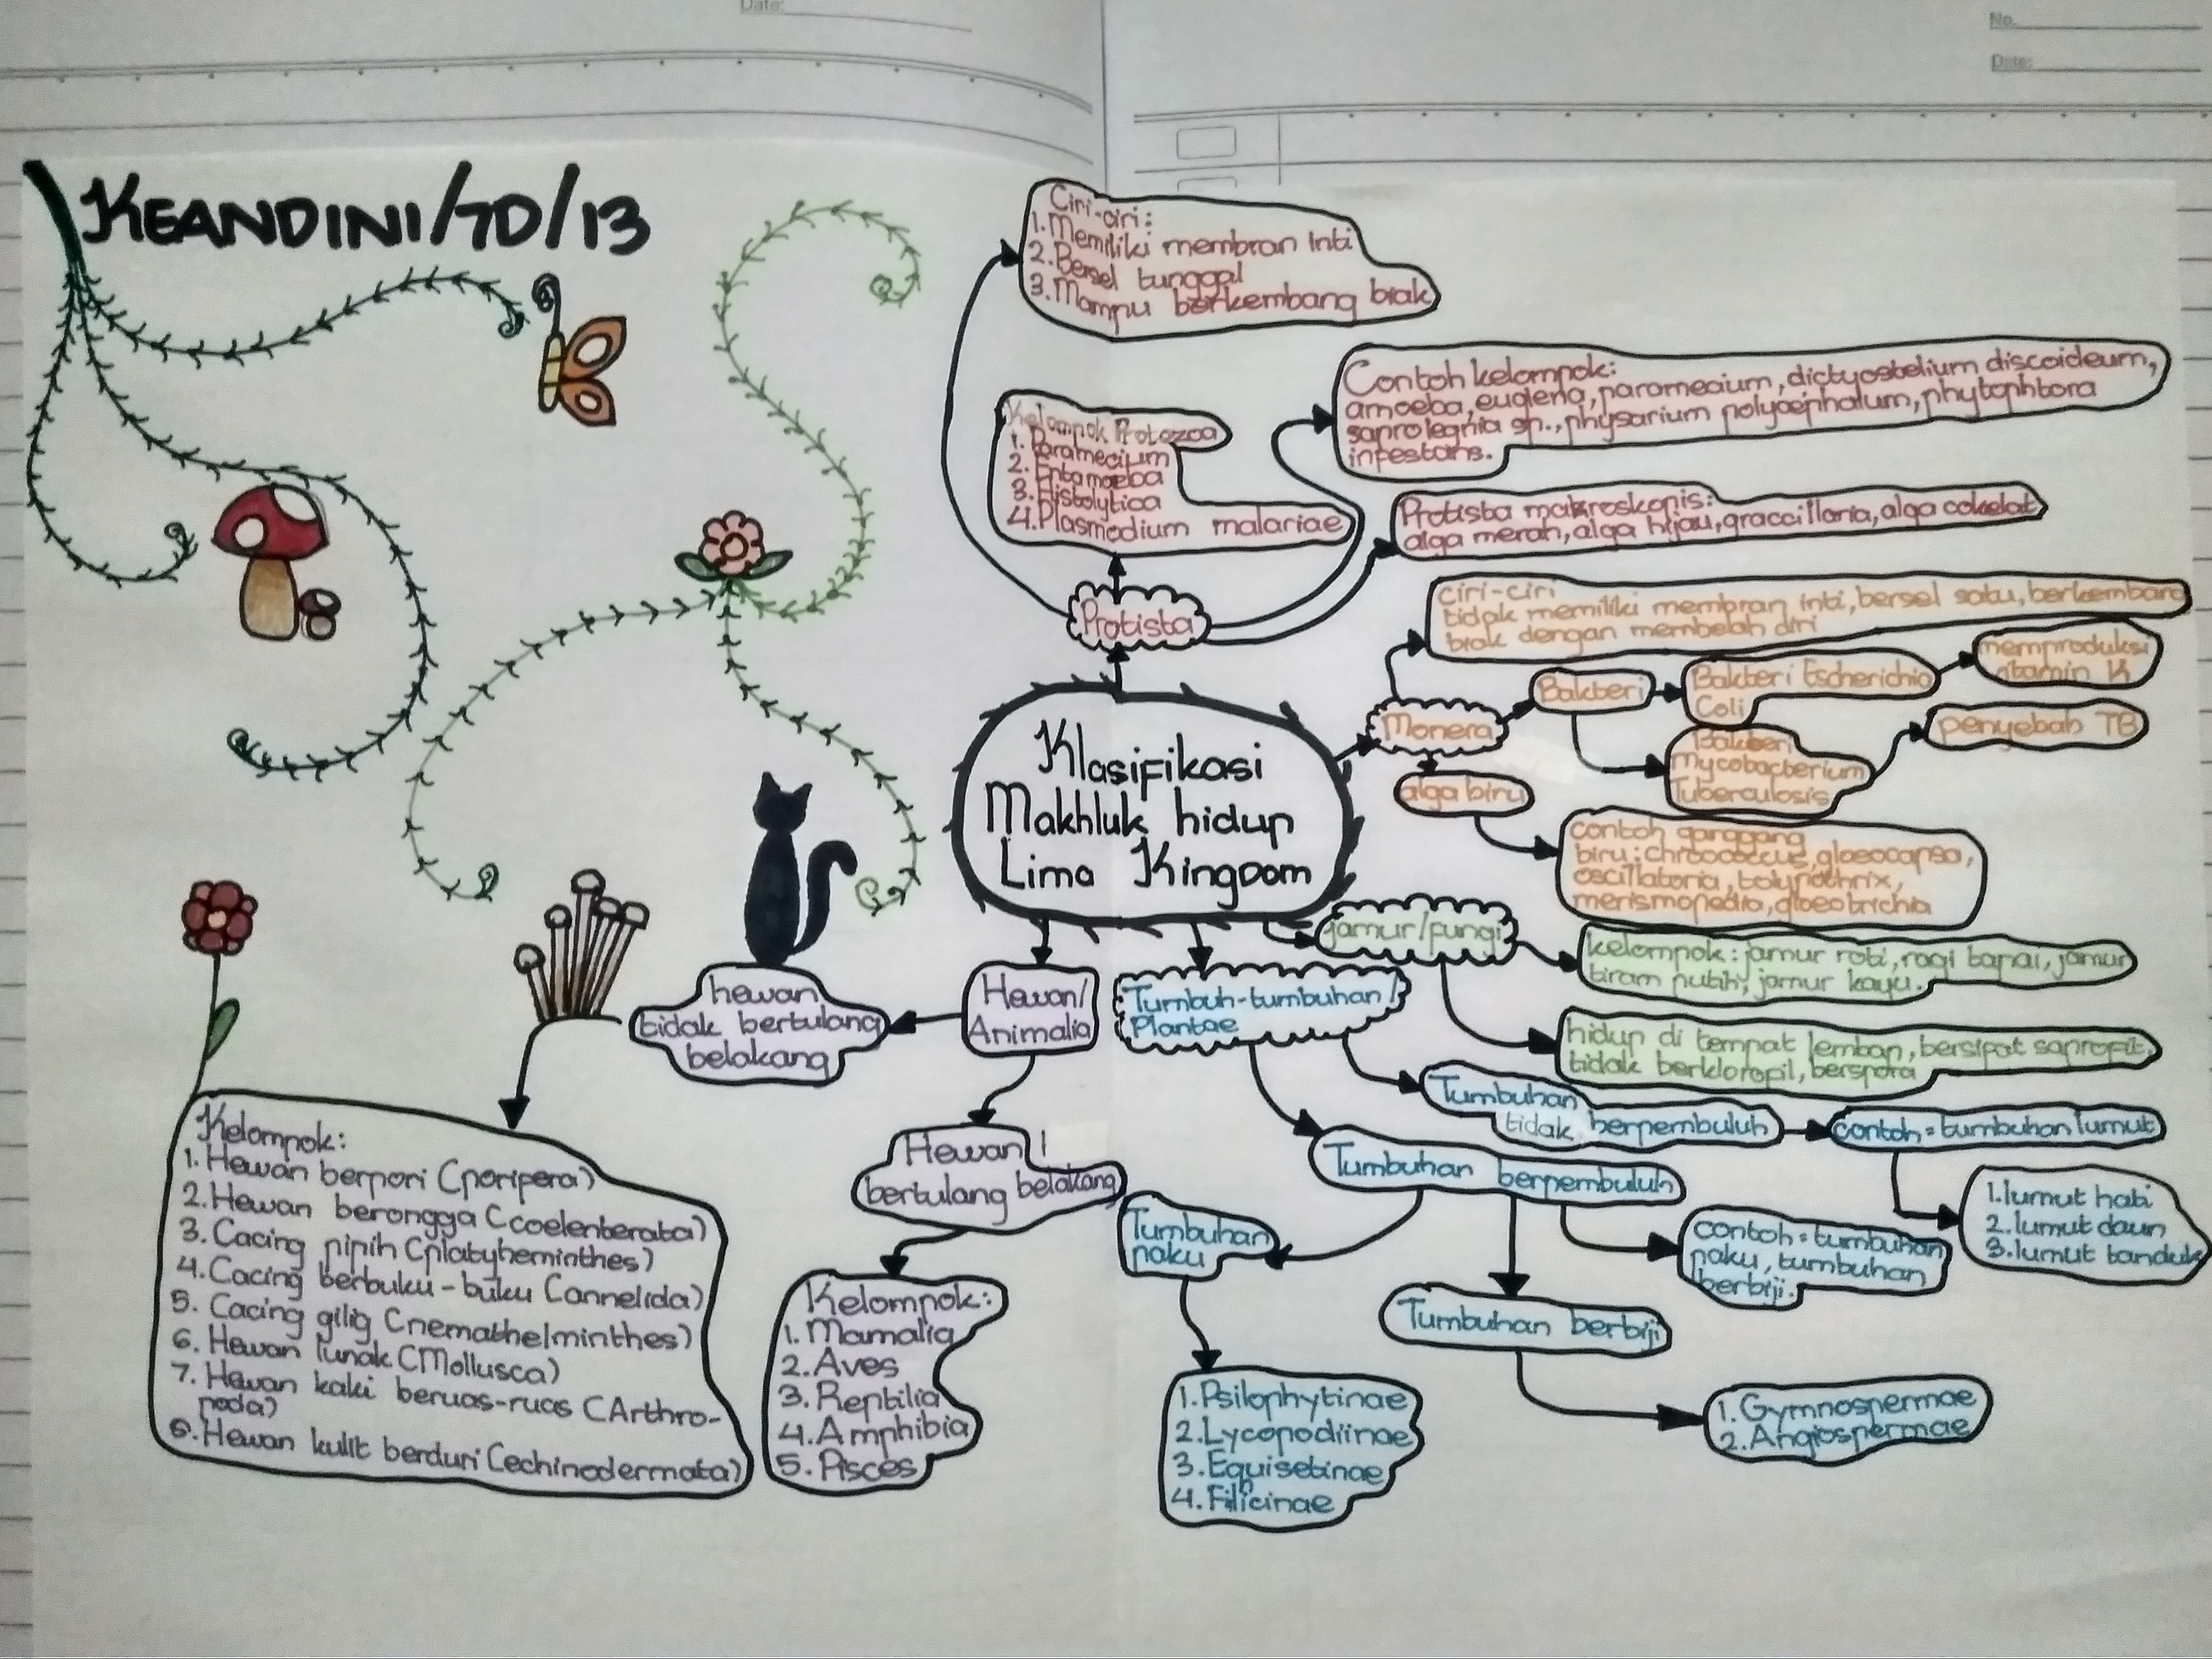 Date:
No.
Date:
KEANDINI/7D/13
Ciri-ciri:
1. Memiliki membran Inti
2. Bersel tunggal
3. Mampu berkembang biak
Contoh kelompok:
amoeba, euglena, paramecium, dictyostelium discoideum,
saprolegnia sp., physarium polycephalum, phytophtora
infestans.
Kelompok Protozoa
1. Paramecium
2. Entamoeba
3. Histolytica
4. Plasmodium malariae
Protista makroskopis:
alga merah, alga hijau, graccillaria, alga cokelat
Protista
ciri-ciri
tidak memiliki membran inti, bersel satu, berkembang
biak dengan membelah diri
Monera
Bakteri
Bakteri Escherichia
Coli
memproduksi
vitamin K
Bakteri
Mycobacterium
Tuberculosis
penyebab TB
alga biru
contoh ganggang
biru: chroococcus, gloeocapsa,
oscillatoria, tolypothrix,
merismopedia, gloeotrichia
Klasifikasi
Makhluk hidup
Lima Kingdom
jamur/fungi
kelompok: jamur roti, ragi tapai, jamur
tiram putih, jamur kayu.
hidup di tempat lembab, bersifat saprofit,
tidak berklorofil, berspora
hewan
tidak bertulang
belakang
Hewan/
Animalia
Tumbuh-tumbuhan/
Plantae
Tumbuhan
tidak berpembuluh
contoh = tumbuhan lumut
1. lumut hati
2. lumut daun
3. lumut tanduk
Tumbuhan berpembuluh
Hewan
bertulang belakang
Tumbuhan
paku
contoh = tumbuhan
paku, tumbuhan
berbiji.
Tumbuhan berbiji
Kelompok:
1. Hewan berpori (porifera)
2. Hewan berongga (coelenterata)
3. Cacing pipih (platyheminthes)
4. Cacing berbuku-buku (annelida)
5. Cacing gilig (nemathelminthes)
6. Hewan lunak (Mollusca)
7. Hewan kaki beruas-ruas (Arthro-
poda)
8. Hewan kulit berduri (echinodermata)
Kelompok:
1. Mamalia
2. Aves
3. Reptilia
4. Amphibia
5. Pisces
1. Psilophytinae
2. Lycopodiinae
3. Equisetinae
4. Filicinae
1. Gymnospermae
2. Angiospermae